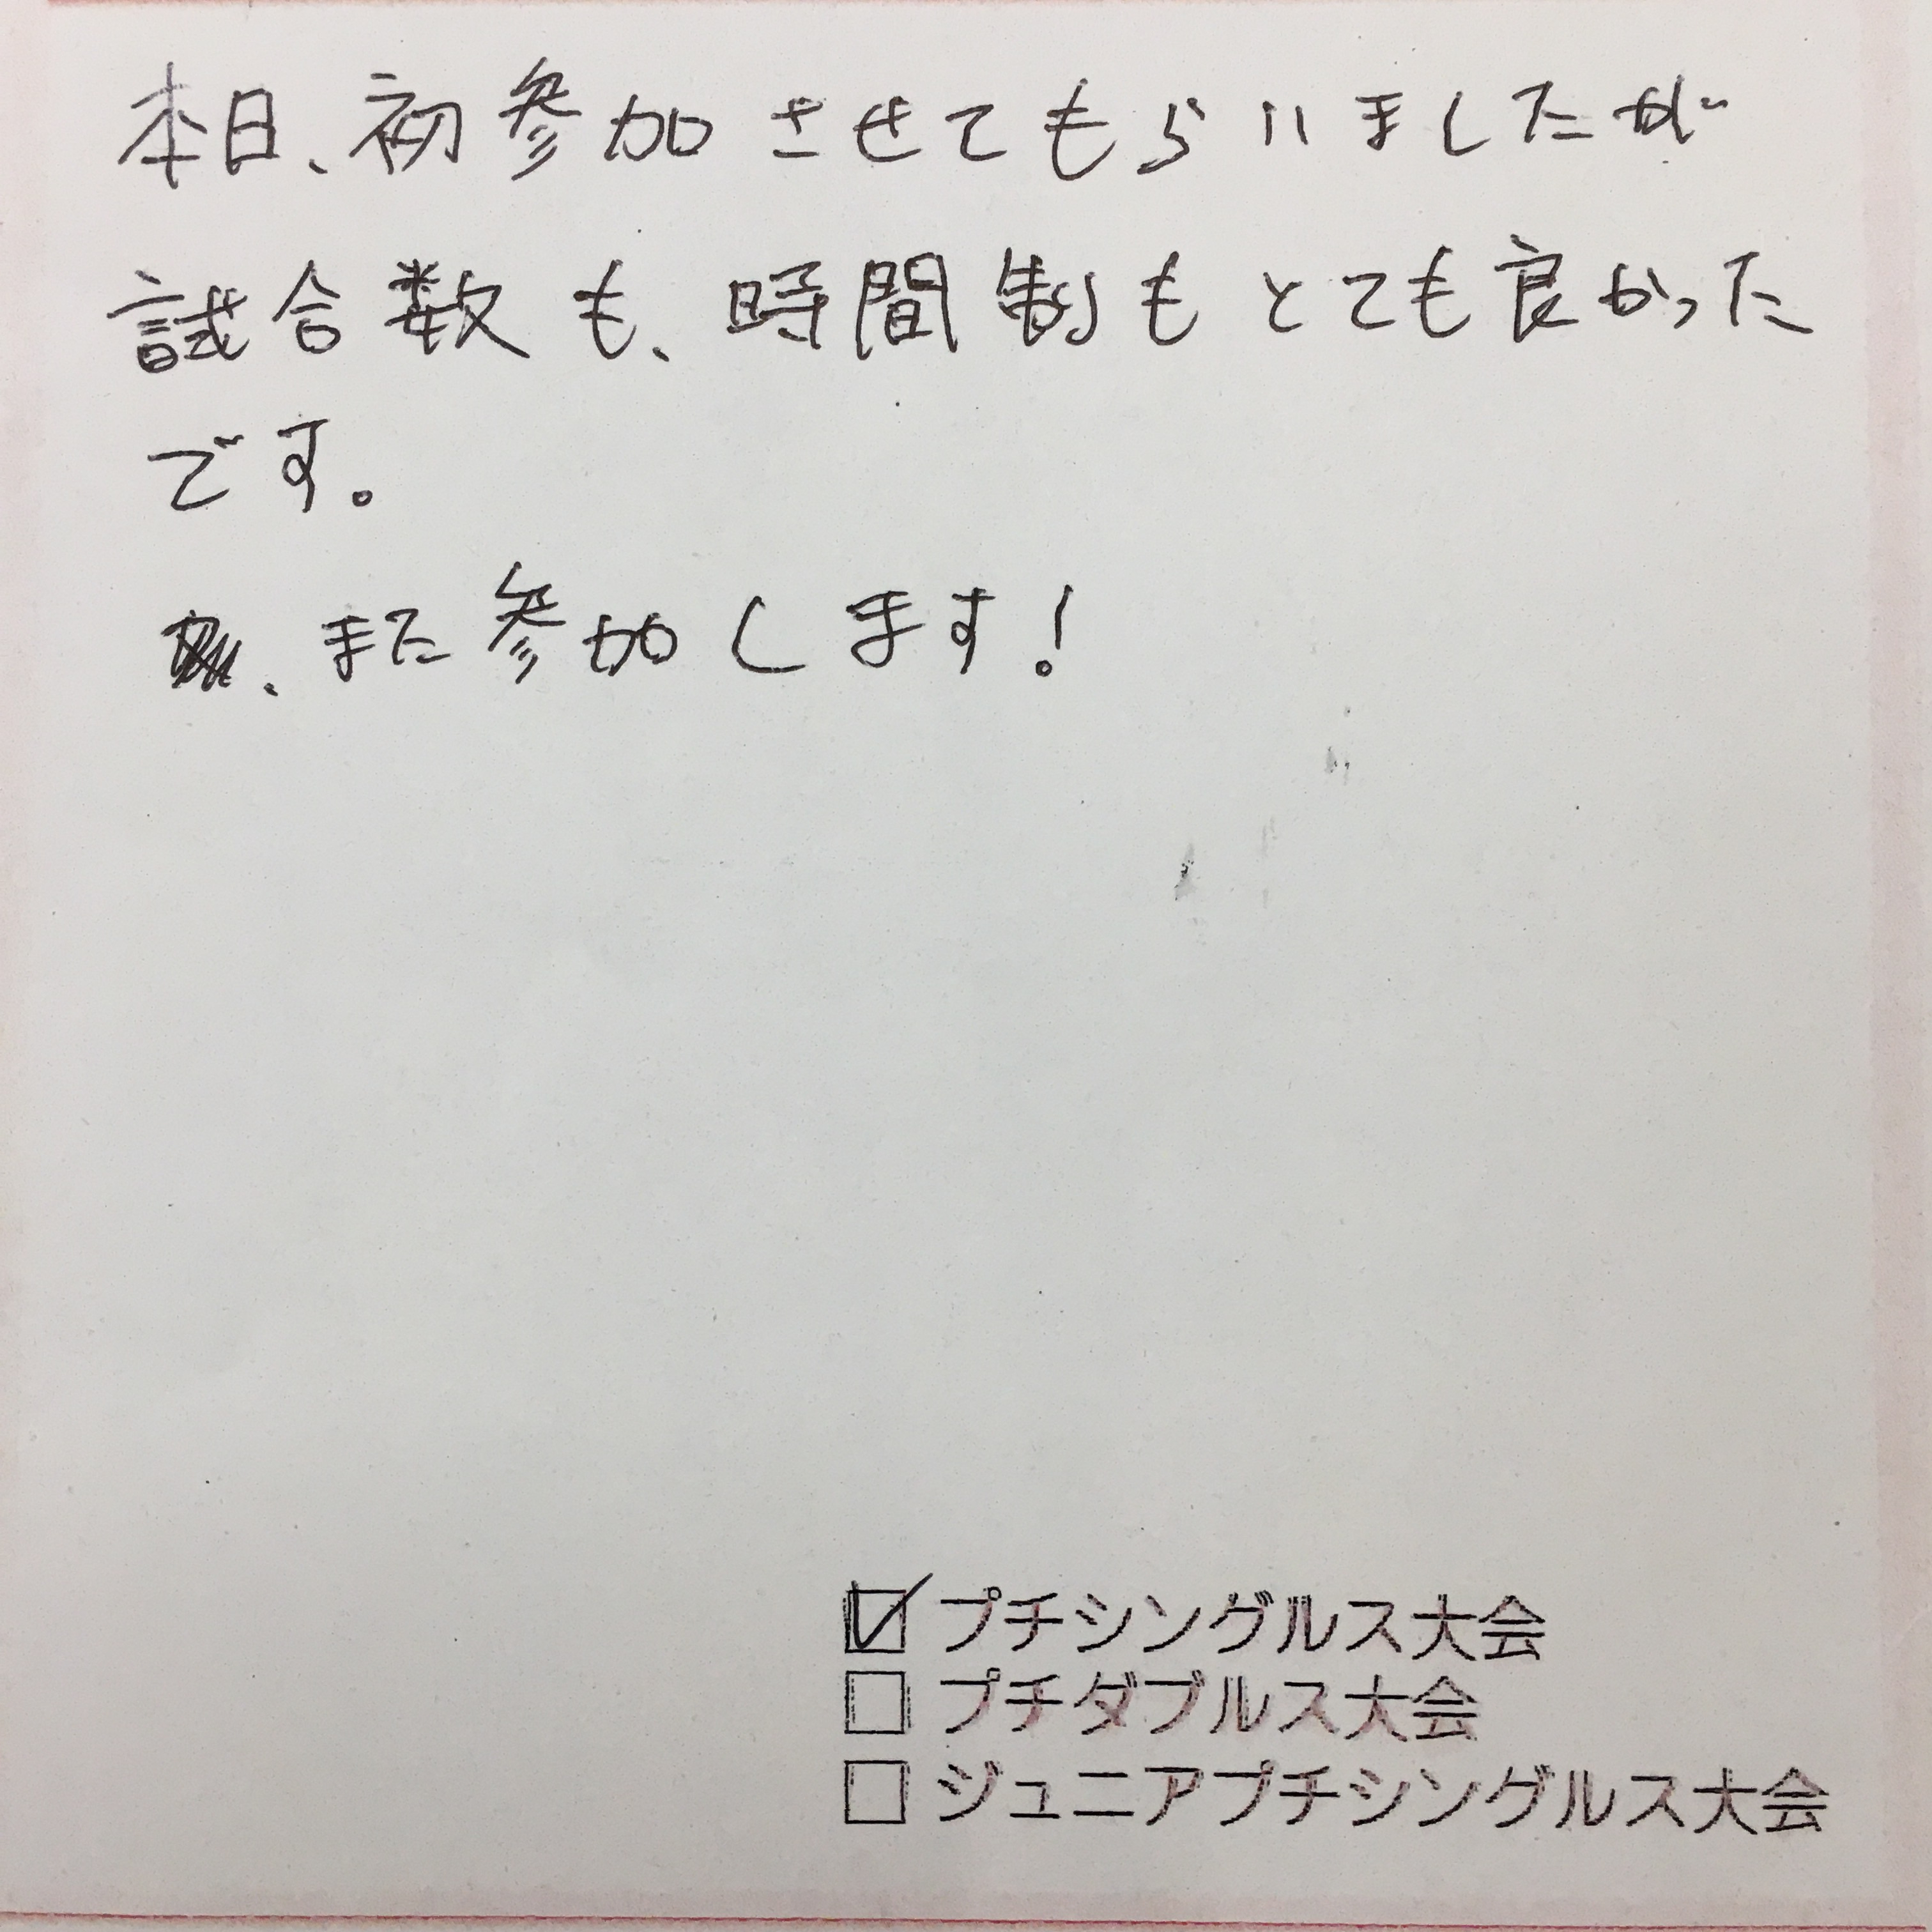 本日、初参加させてもらいましたが
試合数も、時間制もとても良かった
です。
、また参加します!
☑ プチシングルス大会
☐ プチダブルス大会
☐ ジュニアプチシングルス大会